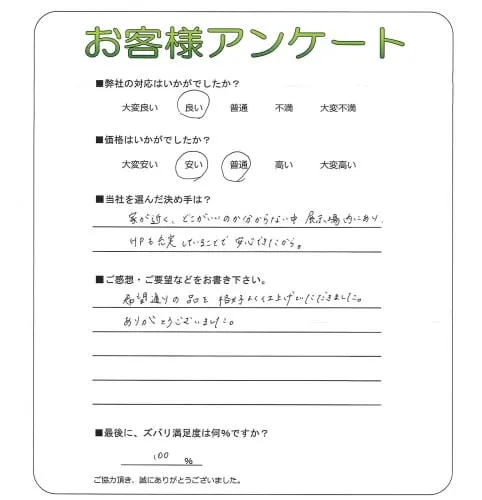 お客様アンケート
■弊社の対応はいかがでしたか？
大変良い 良い 普通 不満 大変不満
■価格はいかがでしたか？
大変安い 安い 普通 高い 大変高い
■当社を選んだ決め手は？
家が近く、どこがいいのか分からない中 展示場内にあり、
HPも充実していることで安心できたから。
■ご感想・ご要望などをお書き下さい。
希望通りの品を格好よく仕上げていただきました。
ありがとうございました。
■最後に、ズバリ満足度は何%ですか？
100 %
ご協力頂き、誠にありがとうございました。